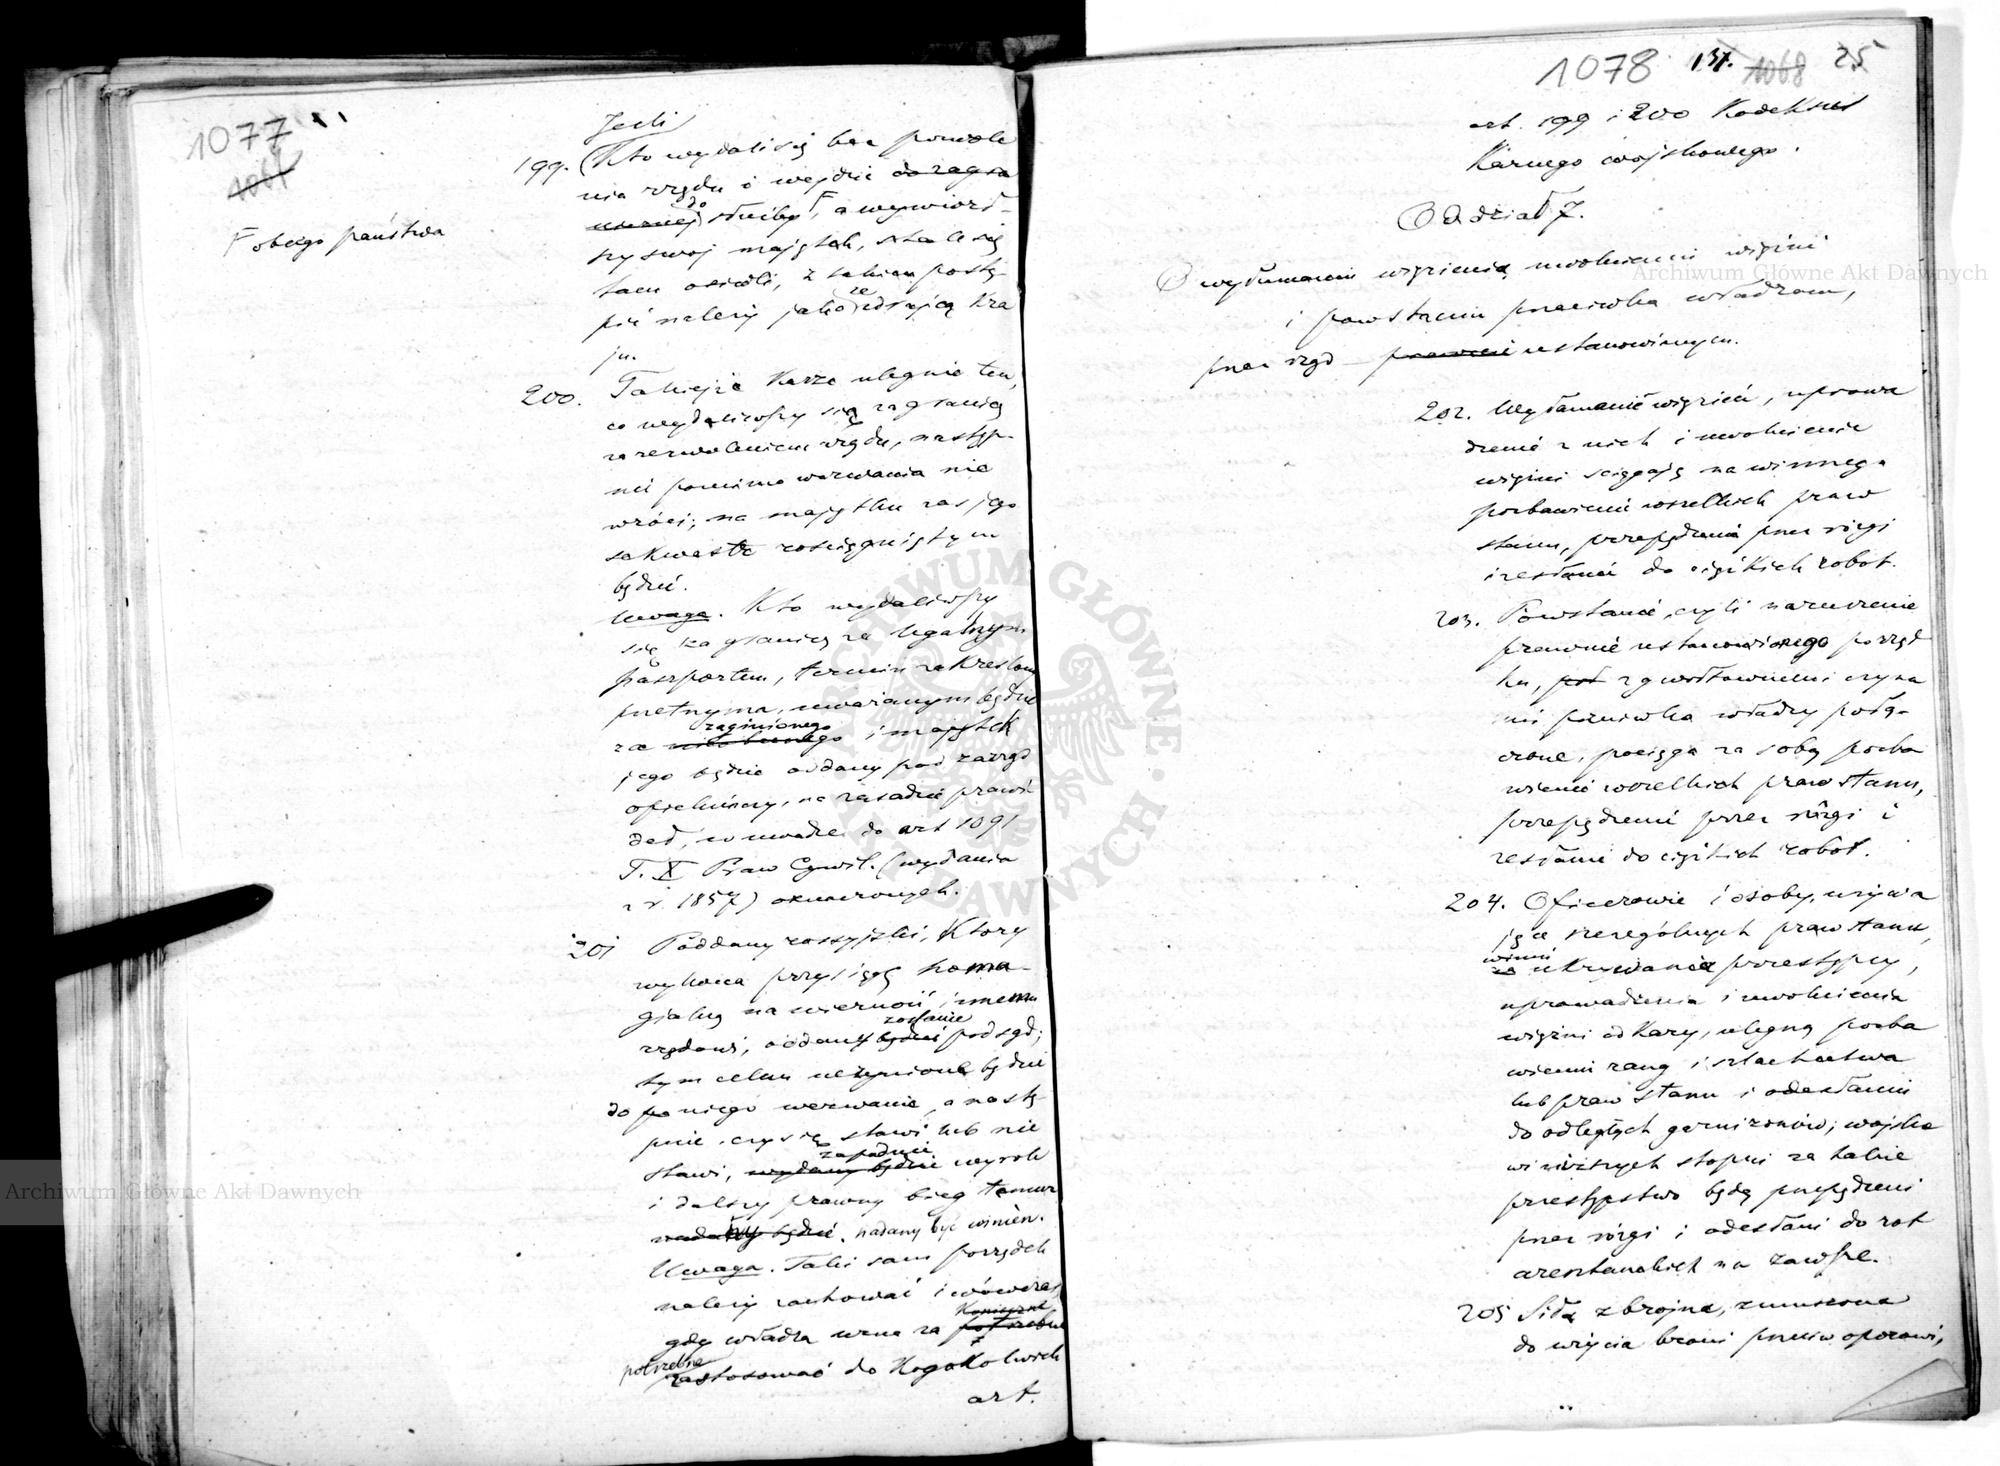 1077
1067
F obcego państwa
Jeśli
199. (Kto wydali się bez pozwole
nia rządu i wejdzie do zagra
nicznej do służby F, a wywiozł-
szy swoj majątek, stale się
tam osiedli, z takiem postą-
pić należy jako ze zdrajcą kra
ju.
200. Takiejże karze ulegnie ten,
co wydaliwszy się za granicę
za zezwoleniem rządu, następ-
nie pomimo wezwania nie
wróci; na majątku zaś jego
sekwestr rosciągniętym
będzie.
Uwaga. Kto wydaliwszy
się za granicę za legalnym
paszportem, termin zakreślony
przetrzyma, uważanym będzie
za zaginionego i majątek
jego będzie oddany pod zarząd
opiekuńczy, na zasadzie prawi
deł, w uwadze do art 1091
T. X Praw Cywil. (wydania
z r. 1857) oznaczonych.
201 Poddany rossyjski, który
wykona przysięgę homa-
gialną na wierność innemu
rządowi, oddany będzie zostanie pod sąd;
tym celem uczynione będzie
do niego wezwanie, a nastę-
pnie, czy się stawi lub nie
stawi, wydany będzie zapadnie wyrok
i dalszy prawny bieg temuż
nadany będzie. nadany być winien.
Uwaga. Taki sam porządek
należy zachować i wówczas,
gdy władza uzna za potrzebne konieczne
potrzebne zastosować do kogokolwiek
art.
1078 137. 1068 25
art. 199 i 200 Kodeksu
Karnego wojskowego.
Oddział 7.
O wyłamaniu więzienia, uwolnieniu więźni
i powstaniu przeciwko władzom,
przez rząd prawnie ustanowionym.
202. Wyłamanie więzień, uprowa
dzenie z nich i uwolnienie
więźni ściągają na winnego
pozbawienie wszelkich praw
stanu, przepędzenie przez rózgi
i zesłanie do ciężkich robot.
203. Powstanie, czyli naruszenie
prawnie ustanowionego porząd
ku, z gwałtownemi czyna
mi przeciwko władzy połą-
czone, pociąga za sobą pozba
wienie wszelkich praw stanu,
przepędzenie przez rózgi i
zesłanie do ciężkich robot.
204. Oficerowie i osoby, używa
jące szczególnych praw stanu,
za winni ukrywania przestępcy,
uprowadzenia i uwolnienia
więźni od kary, ulegną pozba
wieniu rang i szlachectwa
lub praw stanu i odesłaniu
do odległych garnizonów; wojsko
wi niższych stopni za takie
przestępstwo będą przepędzeni
przez rózgi i odesłani do rot
aresztanckich na zawsze.
205 Siła zbrojna, zmuszona
do użycia broni przeciw oporowi,
Archiwum Główne Akt Dawnych
Archiwum Główne Akt Dawnych
ARCHIWUM GŁÓWNE AKT DAWNYCH